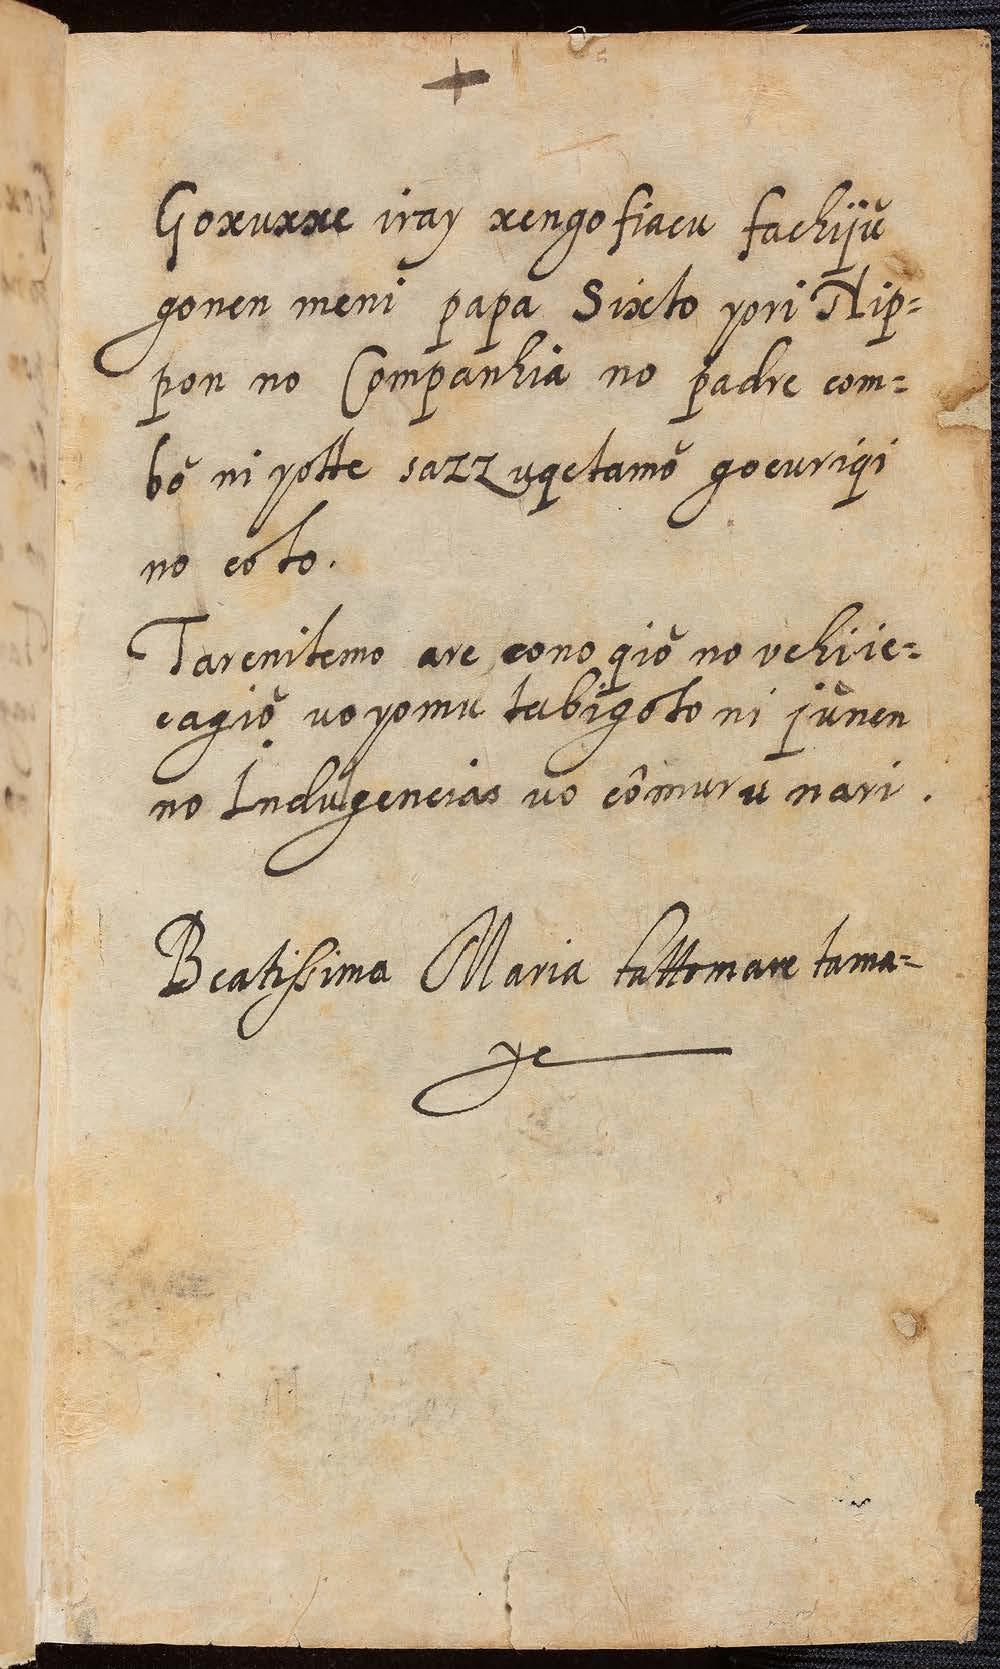 Goxuxxe iray xengofiacu fachijŭ
gonen meni papa Sixto yori Nip=
pon no Companhia no padre com=
bŏ ni yotte sazzuqetamŏ gocuriqi
no coto.
Tarenitemo are cono qiŏ no vchi ic=
cagiŏ uo yomu tabigoto ni jŭnen
no Indulgencias uo cômuru nari.
Beatissima Maria tattomare tama=
ye